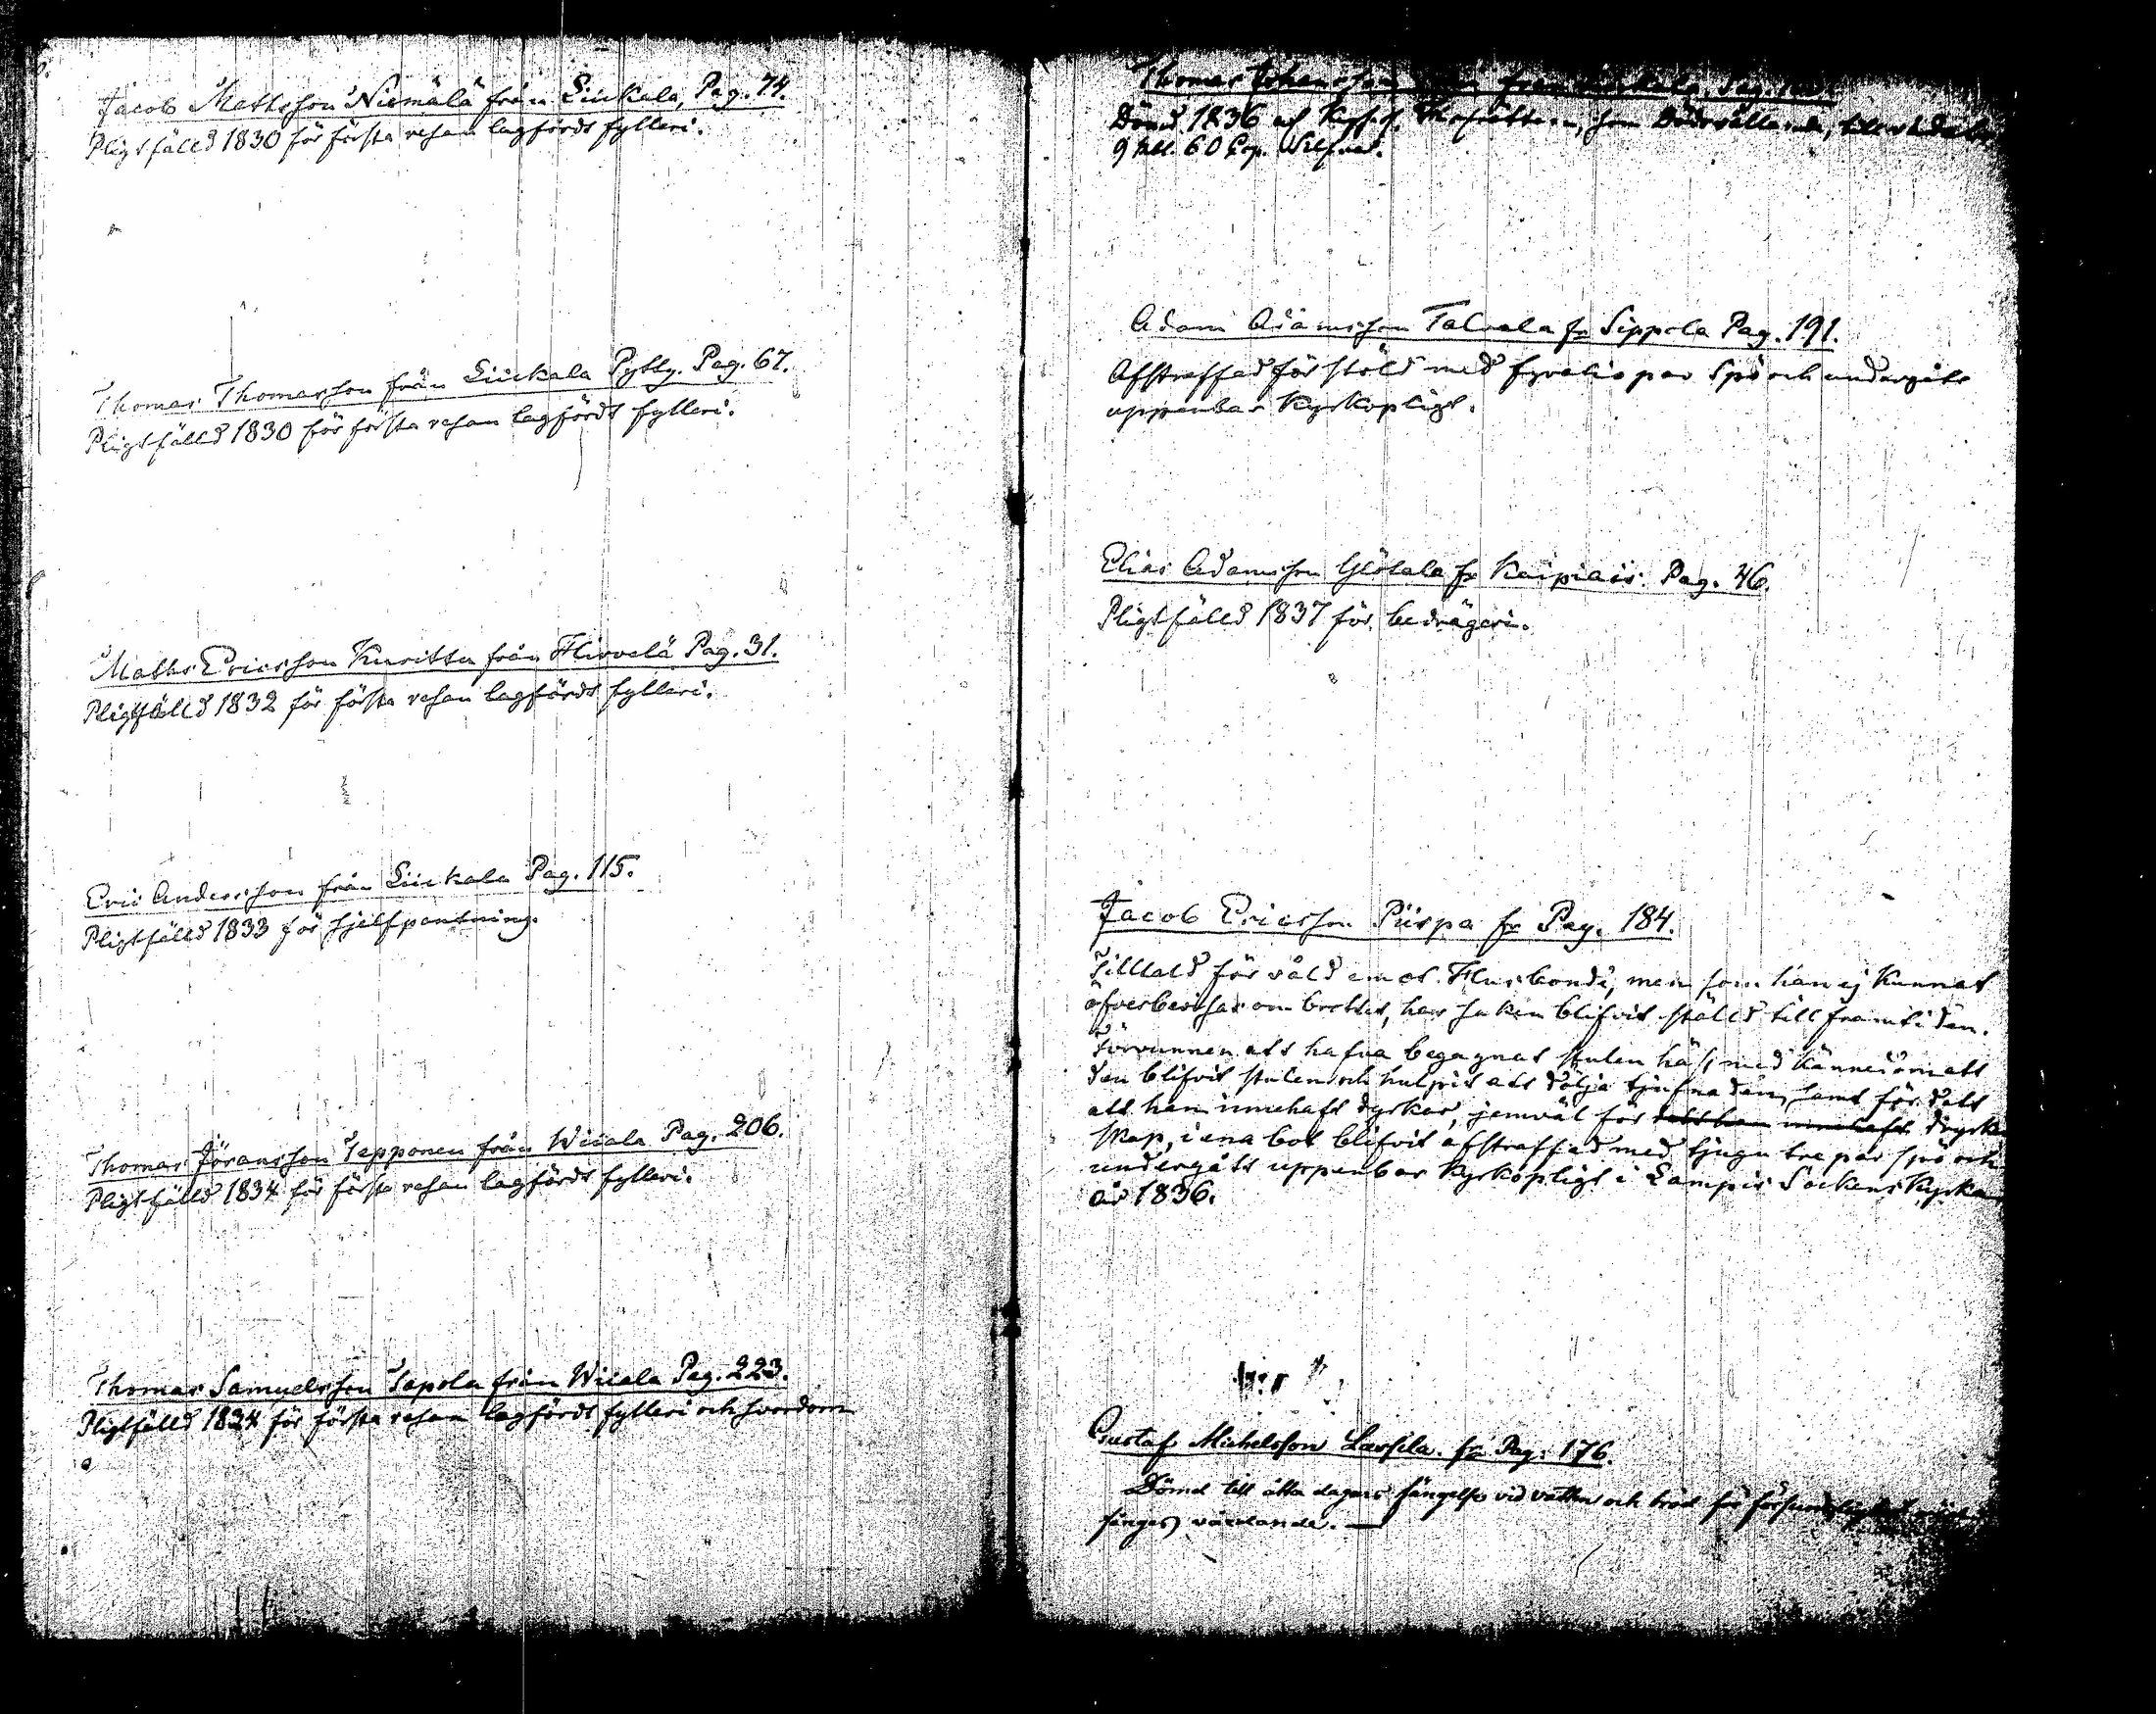 Jacob Mattsson Niemälä från Liickala, Pag. 74.
Pligtfälld 1830 för första resan lagfördt fylleri.
Thomas Thomasson från Liickala Pytty. Pag. 67.
Pligtfälld 1830 för första resan lagfördt fylleri.
Matts Ericsson Kuritta från Hirvelä Pag. 31.
Pligtfälld 1832 för första resan lagfördt fylleri.
Eric Andersson från Liickala Pag. 115.
Pligtfälld 1833 för sjelfpantning.
Thomas Jöransson Tepponen från Wiiala Pag. 206.
Pligtfälld 1834 för första resan lagfördt fylleri.
Thomas Samuelsson Tapola från Wiiala Pag. 223.
Pligtfälld 1834 för första resan lagfördt fylleri och svordom
Thomas Johansson från Pag.
Dömd 1836 af Hofrätten, som
9 60 Cop. Silfver.
Adam Adamsson Talvela fr Sippola Pag. 191.
Afstraffad för stöld med fyratio par Spö och undergått
uppenbar Kyrkopligt.
Elias Adamsson fr Kaipiais Pag. 46.
Pligtfälld 1837 för bedrägeri.
Jacob Ericsson Piispa fr Pag. 184.
Tilltald för våld emot Husbonde, men som han ej Kunnat
öfverbevisas om brottet, har saken blifvit ställd till framtiden.
Förvunnen att hafva begagnat stulen häst med kännedom att
den blifvit stulen och hulpit att dölja tjufnaden, samt för det
att han innehaft dyrkar, jemväl för det han innehaft dryck
skap, i ena bot blifvit afstraffad med tjugu tre par spö och
undergått uppenbar Kyrkopligt i Lampis Sockens Kyrka
år 1836.
Gustaf Michelsson Laxsila fr Pag. 176.
Dömd till åtta dagars fängelse vid vatten och bröd för
fånges vårdande.